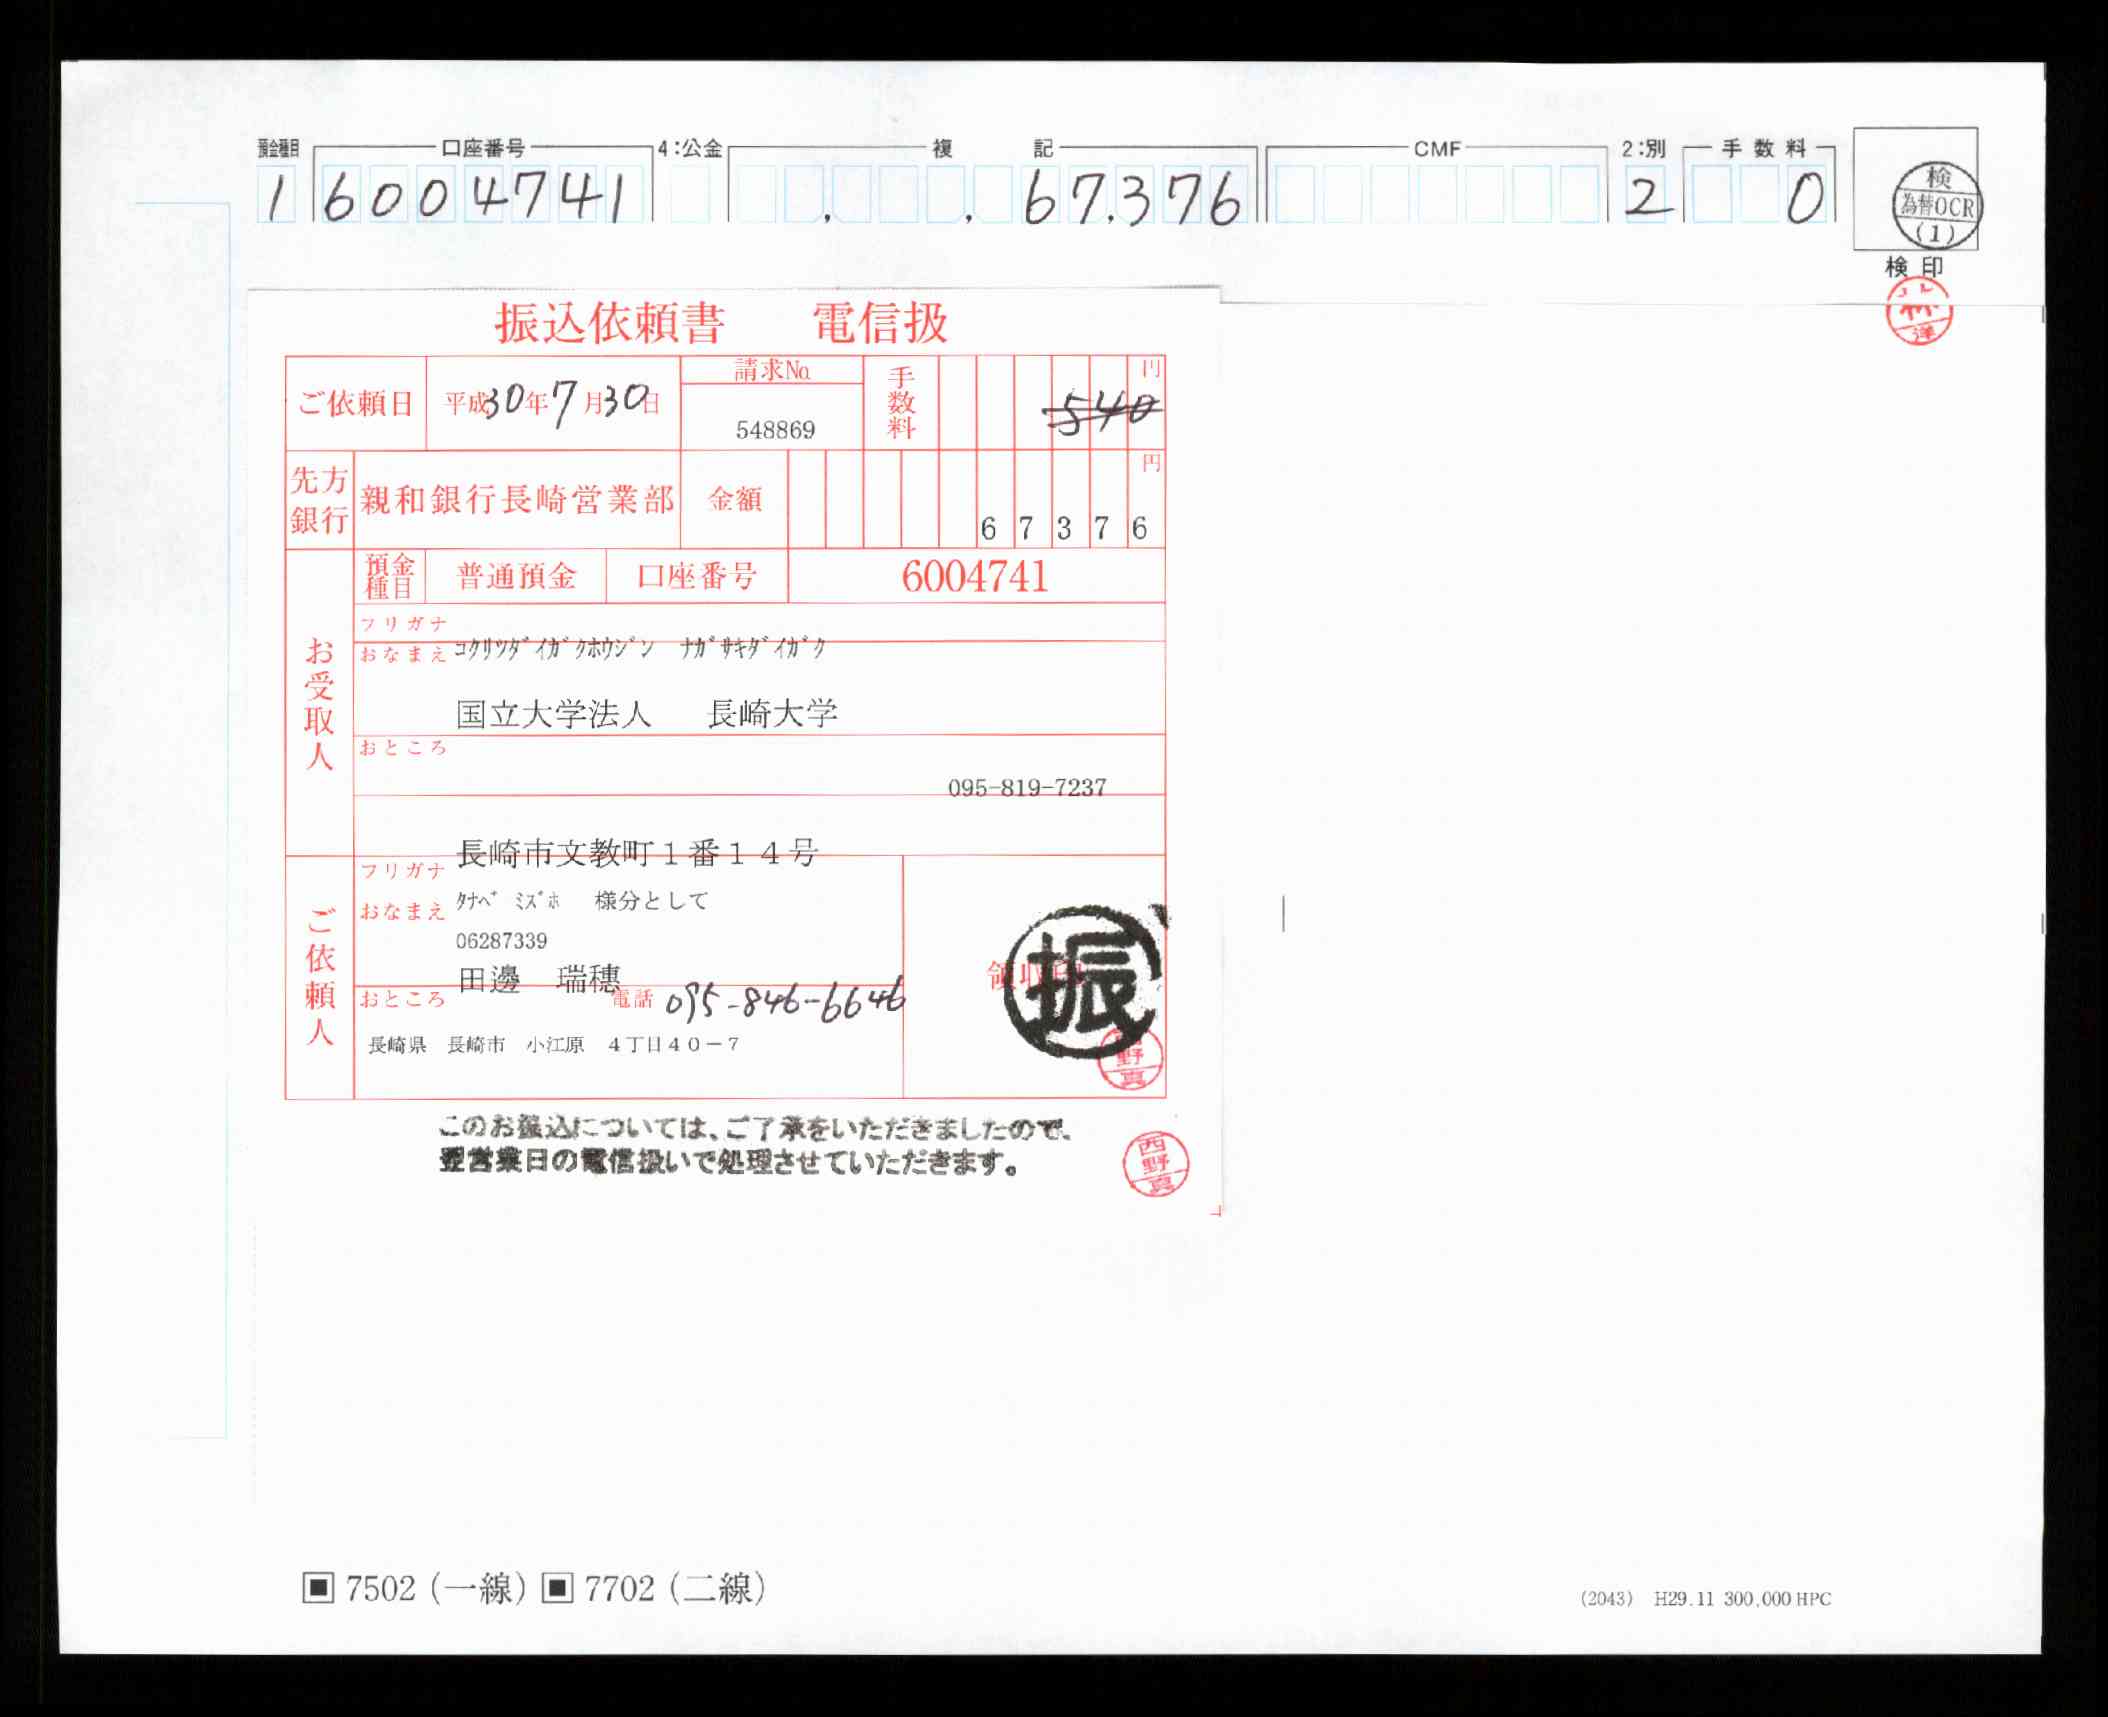 預金種目 口座番号 4:公金 複 記 CMF 2:別 手数料
1 6004741 67,376 2 0
検
為替OCR
(1)
検印
振込依頼書 電信扱
ご依頼日 平成30年7月30日 請求No. 548869 手数料 540 円
先方銀行 親和銀行長崎営業部 金額 67376 円
お受取人
預金種目 普通預金 口座番号 6004741
フリガナ
おなまえ コクリツダイガクホウジン ナガサキダイガク
国立大学法人 長崎大学
おところ
095-819-7237
長崎市文教町1番14号
ご依頼人
フリガナ
タナベ ミズホ 様分として
おなまえ
06287339
田邊 瑞穗
おところ 電話 095-846-6646
長崎県 長崎市 小江原 4丁目40-7
領収印
振
西野真
このお振込については、ご了承をいただきましたので、
翌営業日の電信扱いで処理させていただきます。
西野真
▣ 7502 (一線) ▣ 7702 (二線)
(2043) H29.11 300,000 HPC